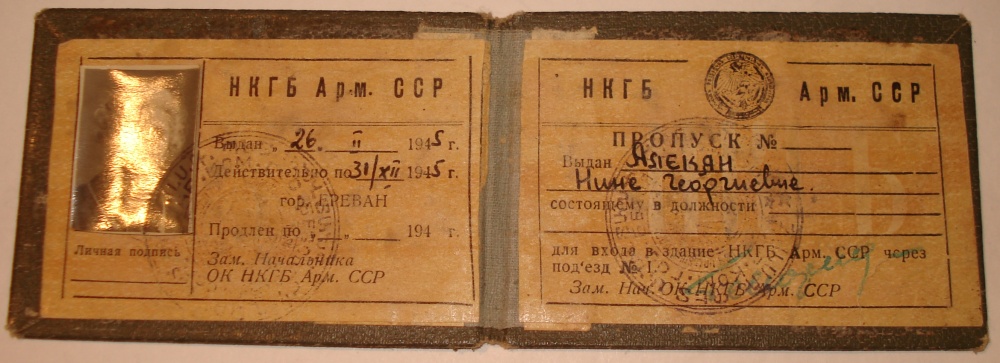 НКГБ Арм. ССР
Выдан „ 26. II 1945 г.
Действительно по 31/XII 1945 г.
гор. ЕРЕВАН
Продлен по „ “ 194 г.
Личная подпись
Зам. Начальника
ОК НКГБ Арм. ССР
НКГБ Арм. ССР
ПРОПУСК №
Выдан Алекян
Нине Георгиевне.
состоящему в должности
для входа в здание НКГБ Арм. ССР через
под'езд № 1.
Зам. Нач. ОК НКГБ Арм. ССР